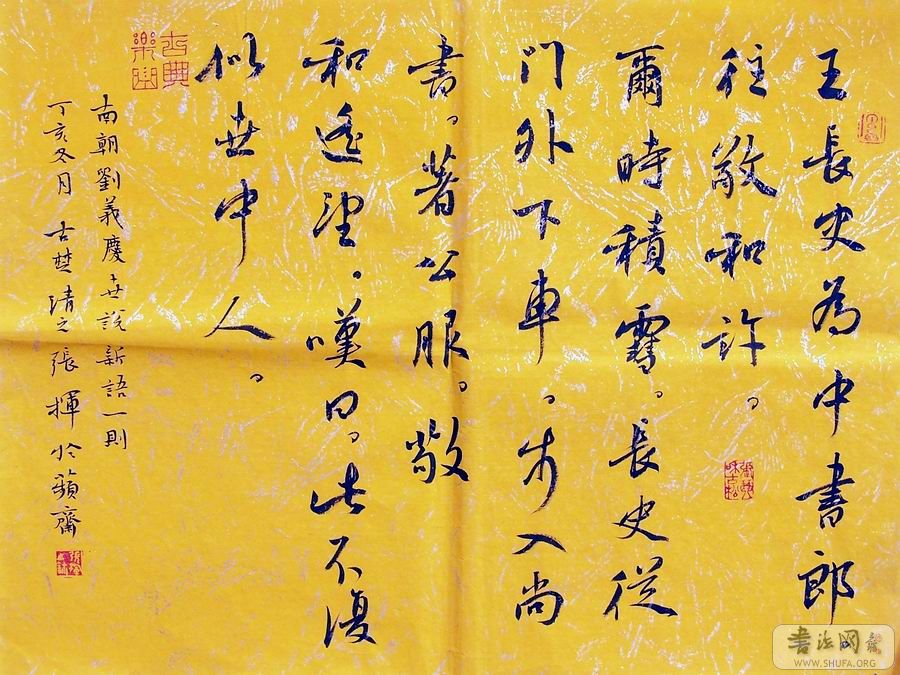 王長史為中書郎
往敬和許。
爾時積雪。長史従
门外下車。步入尚
書。著公服。敬
和遥望。嘆曰。此不復
似世中人。
南朝劉義慶世說新語一則
丁亥冬月 古楚清之張揮於蘋齋
书法网
WWW.SHUFA.ORG